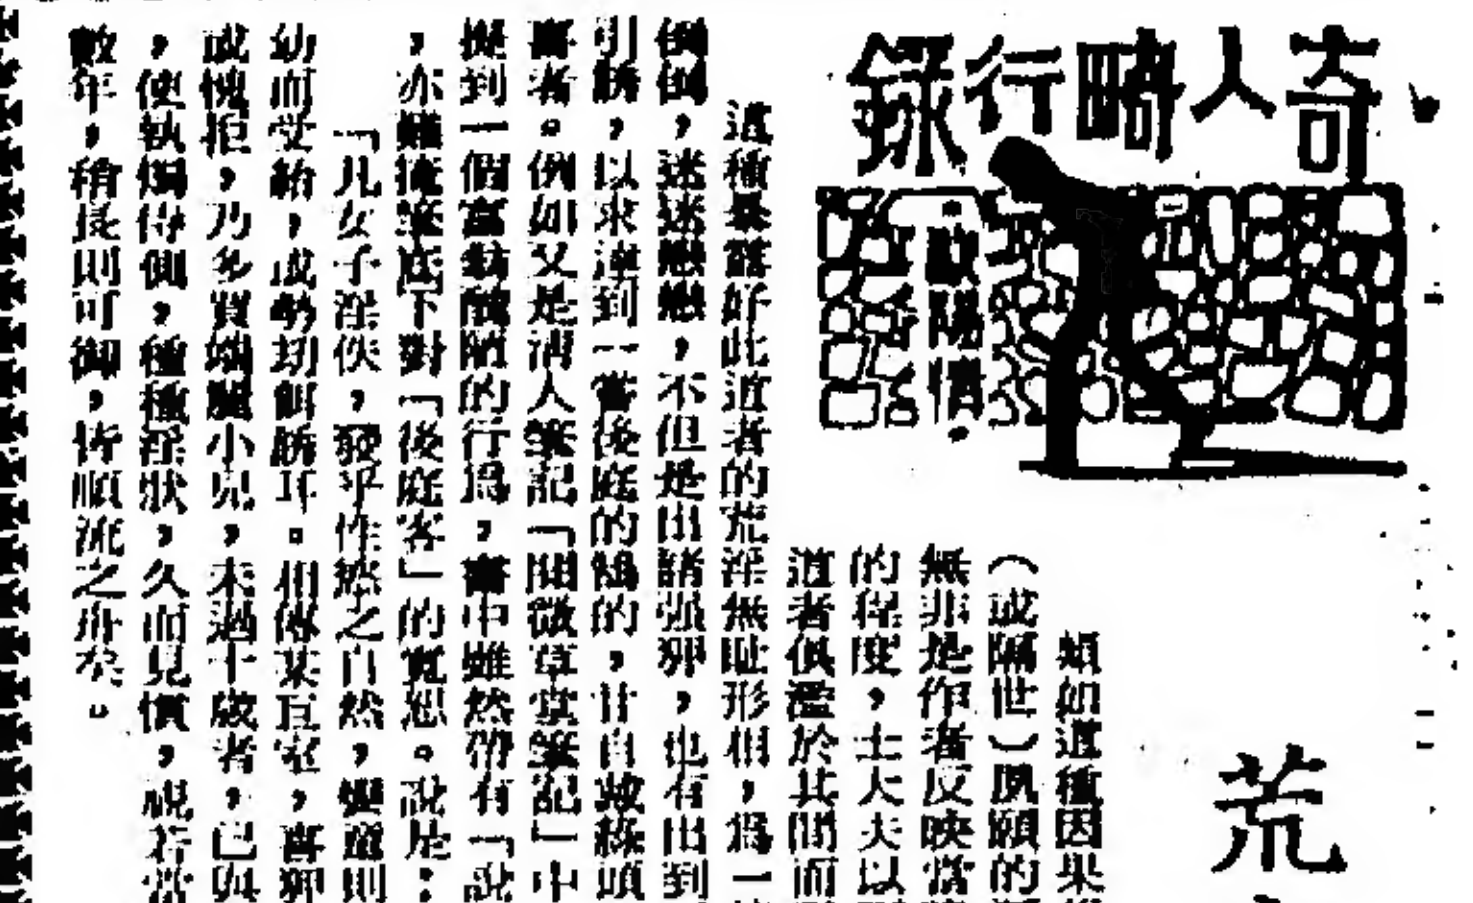 奇人畸行錄
歐陽倩
荒
類如這種因果
（或隔世）夙願的
無非是作者反映當
的程度，士大夫以
道者俱濫於其間而
這種暴露好此道者的荒淫無恥形相，爲一
倒倒，迷迷戀戀，不但是出諸强狎，也有出到
引誘，以求達到一嘗後庭的 的，甘自戴綠頭
者。例如又是清人筆記「閱微草堂筆記」中
提到一個富 醜陋的行爲，書中雖然帶有「說
，亦難掩筆底下對「後庭客」的寬恕。說是：
「凡女子淫佚，發乎性慾之自然，孌童則
幼而受紿，或勢劫餌誘耳。相傳某巨室，喜狎
或愧拒，乃多買端麗小兒，未過十歲者，已與
，使執燭侍側，種種淫狀，久而見慣，視若當
數年，稍長則可御，皆順流之舟矣。